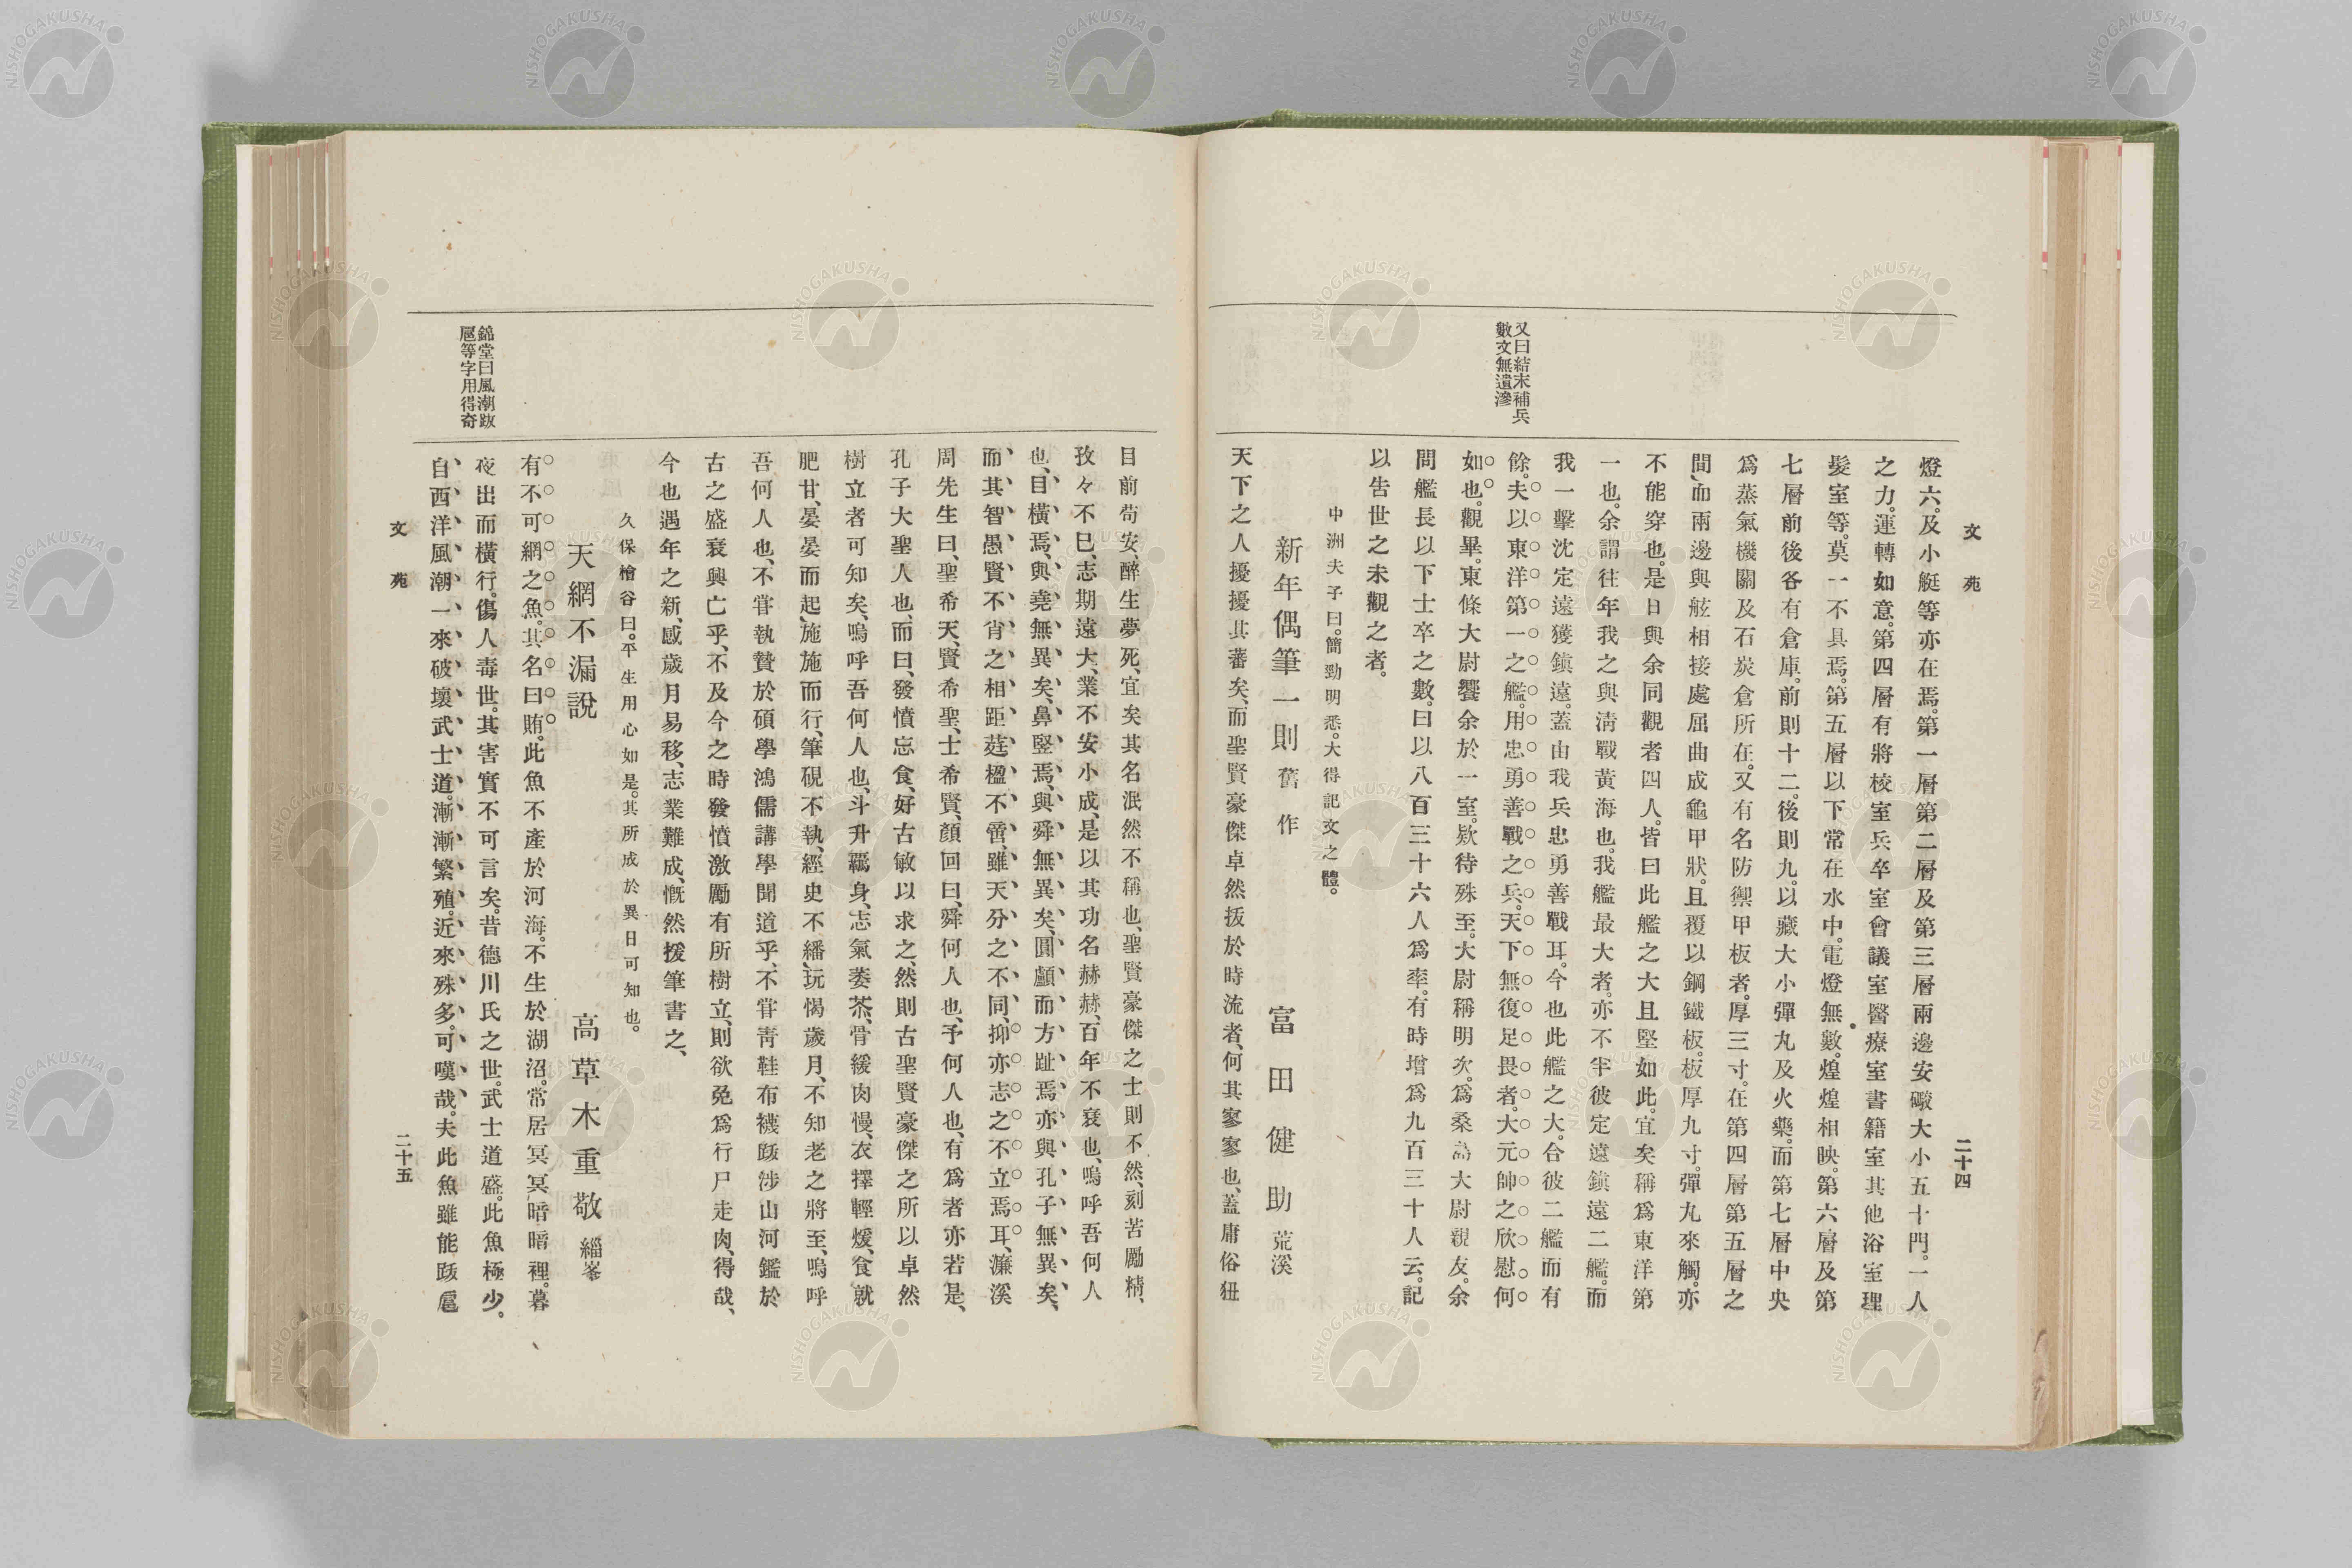 文苑
二十四
又曰結末補兵
數文無遺滲
燈六。及小艇等亦在焉。第一層第二層及第三層兩邊安礮大小五十門。一人
之力。運轉如意。第四層有將校室兵卒室會議室醫療室書籍室其他浴室理
髮室等。莫一不具焉。第五層以下常在水中。電燈無數。煌煌相映。第六層及第
七層前後各有倉庫。前則十二。後則九。以藏大小彈丸及火藥。而第七層中央
爲蒸氣機關及石炭倉所在。又有名防禦甲板者。厚三寸。在第四層第五層之
間、而兩邊與舷相接處屈曲成龜甲狀。且覆以鋼鐵板。板厚九寸。彈丸來觸。亦
不能穿也。是日與余同觀者四人。皆曰此艦之大且堅如此。宜矣稱爲東洋第
一也。余謂往年我之與淸戰黃海也。我艦最大者。亦不半彼定遠鎭遠二艦。而
我一擊沈定遠獲鎭遠。蓋由我兵忠勇善戰耳。今也此艦之大。合彼二艦而有
餘。夫以東洋第一之艦。用忠勇善戰之兵。天下無復足畏者。大元帥之欣慰何
如也。觀畢。東條大尉饗余於一室。欵待殊至。大尉稱明次。爲桑島大尉親友。余
問艦長以下士卒之數。曰以八百三十六人爲率。有時增爲九百三十人云。記
以吿世之未觀之者。
中洲夫子曰。簡勁明悉。大得記文之體。
新年偶筆一則 舊作 富田健助 荒溪
天下之人擾擾其蕃矣、而聖賢豪傑卓然拔於時流者、何其寥寥也、蓋庸俗狃
目前苟安、醉生夢死、宜矣其名泯然不稱也、聖賢豪傑之士則不然、刻苦勵精、
孜々不已、志期遠大、業不安小成、是以其功名赫赫、百年不衰也、嗚呼吾何人
也、目橫焉、與堯無異矣、鼻竪焉、與舜無異矣、圓顱而方趾焉、亦與孔子無異矣、
而其智愚賢不肖之相距、莛楹不啻、雖天分之不同、抑亦志之不立焉耳、濂溪
周先生曰、聖希天、賢希聖、士希賢、顏回曰、舜何人也、予何人也、有爲者亦若是、
孔子大聖人也、而曰、發憤忘食、好古敏以求之、然則古聖賢豪傑之所以卓然
樹立者可知矣、嗚呼吾何人也、斗升羈身、志氣萎苶、骨緩肉慢、衣擇輕煖、食就
肥甘、晏晏而起、施施而行、筆硯不執、經史不繙、玩愒歲月、不知老之將至、嗚呼
吾何人也、不甞執贄於碩學鴻儒講學聞道乎、不甞靑鞋布襪跋涉山河鑑於
古之盛衰興亡乎、不及今之時發憤激勵有所樹立、則欲免爲行尸走肉、得哉、
今也遇年之新、感歲月易移、志業難成、慨然援筆書之、
久保檜谷曰。平生用心如是。其所成於異日可知也。
天網不漏說 高草木重敬 緇峯
有不可網之魚。其名曰賄。此魚不產於河海。不生於湖沼。常居冥冥暗暗裡。暮
夜出而橫行。傷人毒世。其害實不可言矣。昔德川氏之世。武士道盛。此魚極少。
自西洋風潮一來破壞武士道。漸漸繁殖。近來殊多。可嘆哉。夫此魚雖能跋扈
錦堂曰風潮跋
扈等字用得奇
文苑
二十五